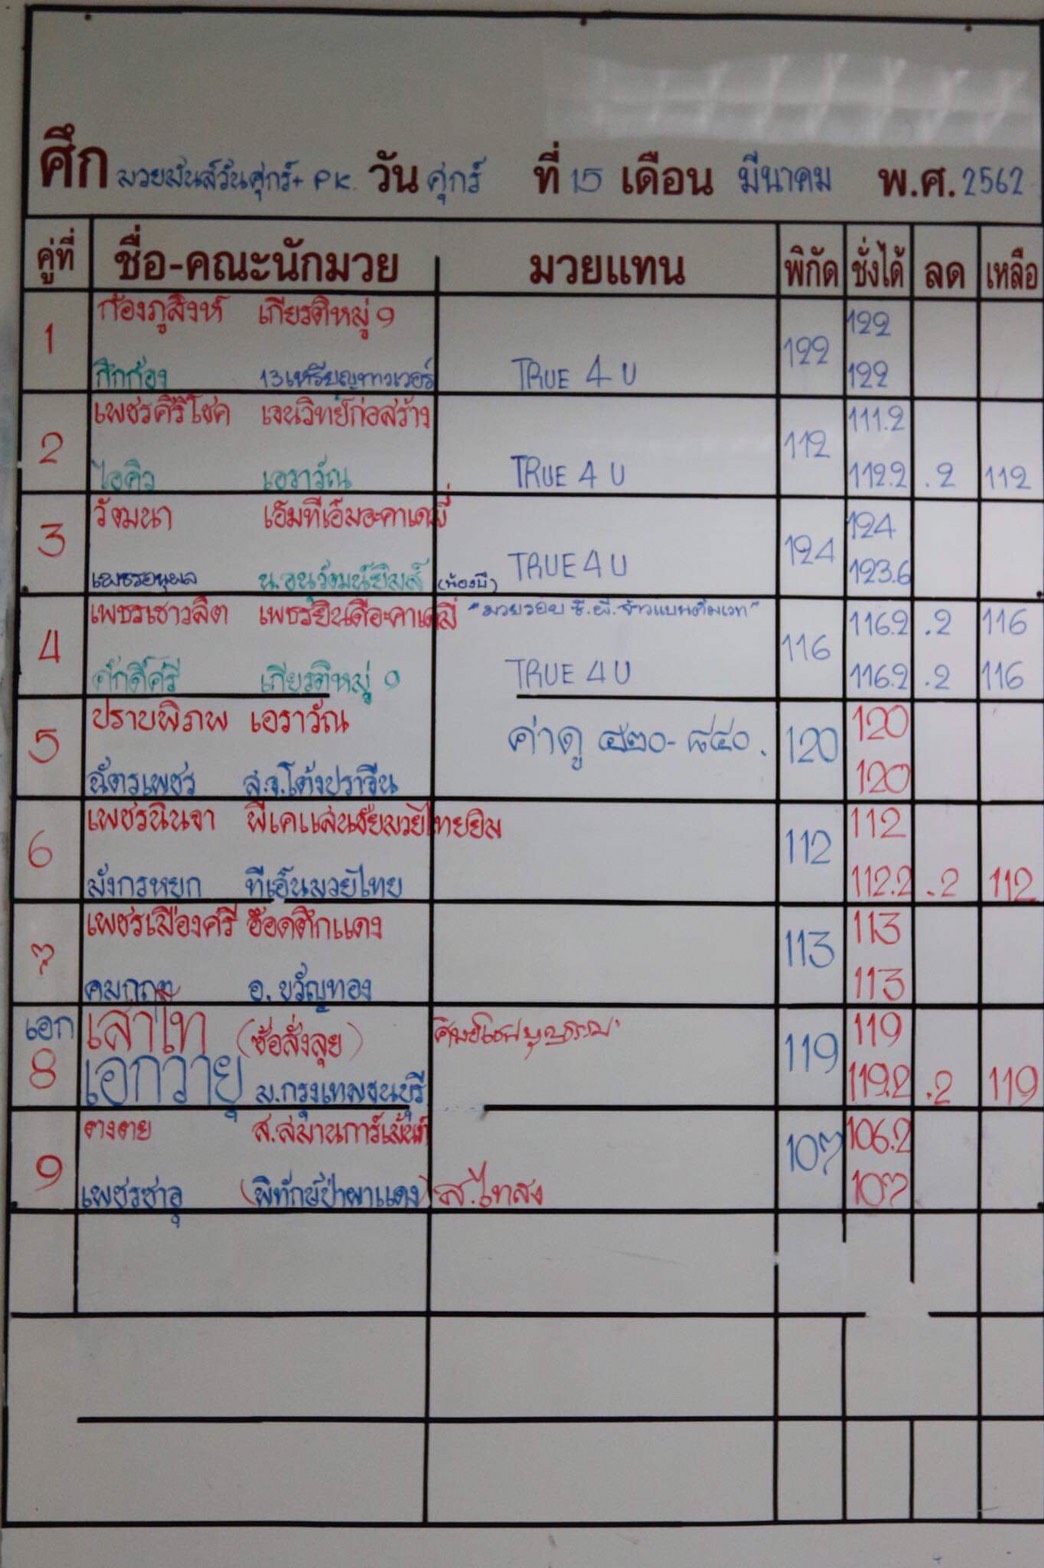 ศึก มวยมันส์วันศุกร์+ PK. วัน ศุกร์ ที่ 15 เดือน มีนาคม พ.ศ. 2562
คู่ที่ ชื่อ-คณะนักมวย มวยแทน พิกัด ชั่งได้ ลด เหลือ
1 ก้องภูสิงห์ เกียรติหมู่ 9 122 122
กิกก้อง 13เหรียญทาวเวอร์ TRUE 4 U 122
2 เพชรศิริโชค เจนวิทย์ก่อสร้าง 112 111.2
ไอคิว เอราวัณ TRUE 4 U 112.2 .2 112
3 วัฒนา เอ็มทีเอ็มอะคาเดมี่ 124 124
(ห้องบี) TRUE 4 U 123.6
4 เพชรเชาวลิต เพชรยินดีอะคาเดมี่ 116 116.2 .2 116
ศักดิ์ศรี เกียรติหมู่ 9 TRUE 4 U 116.2 .2 116
5 ปราบพิภพ เอราวัณ ค่าดู ๕๒๐-๘๔๐. 120 120
ฉัตรเพชร ส.จ.โต้งปราจีน 120
6 เพชรนินจา พีเคแสนชัยมวยไทยยิม 112 112
มังกรหยก ทีเอ็นมวยไทย 112.2 .2 112
7 เพชรเมืองศรี อ๊อดตึกแดง 113 113
คมกฤษ อ.ขวัญทอง 113
เอก 8 เสาโท (ช้อสั่งลุย) 119 119
เอกวายุ ม.กรุงเทพธนบุรี 119.2 .2 119
9 ส.สมานการ์เม้นท์ 107 106.2
เพชรซาลุ (พิทักษ์ป่าผาแดง) ส.ไทสง 107